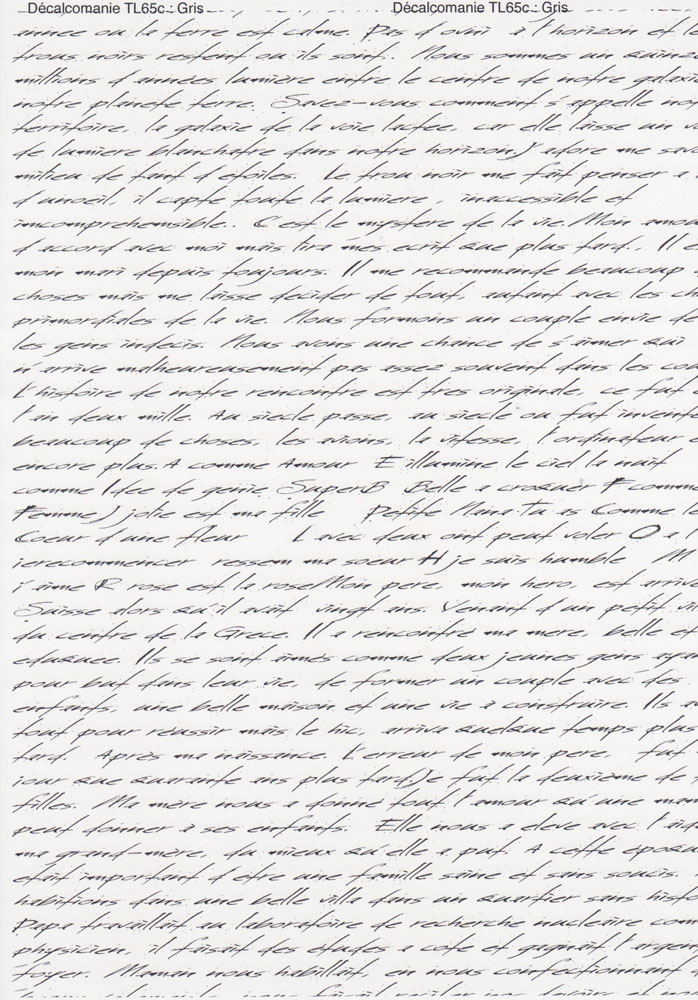 Décalcomanie TL65c : Gris Décalcomanie TL65c : Gris
année ou la terre est calme. Pas d'ovni à l'horizon et
trous noirs restent ou ils sont. Nous sommes un
millions d'années lumière entre le centre de notre
notre planete terre. Savez-vous comment s'appelle
territoire, la galaxie de la voie lactee, car elle laisse un
de lumiere blanchatre dans notre horizon.J'adore me
milieu de tant d'etoiles. Le trou noir me fait penser a
il capte toute la lumiere, inaccessible et
imcomprehensible.. C'est le mystere de la vie.Mon
d'accord avec moi mais lira mes ecrit que plus tard.. Il
mon mari depuis toujours. Il me recommande beaucoup
choses mais me laisse decider de tout, autant avec les
primordiales de la vie. Nous formons un couple envie de
les gens indecis. Nous avons une chance de s'aimer qui
n'arrive malheureusement pas assez souvent dans les
L'histoire de notre rencontre est tres originale, ce fut
l'an deux mille. Au siecle passe, au siecle ou fut
beaucoup de choses, les avions, la vitesse, l'ordinateur
encore plus.A comme Amour E illumine le ciel la nuit
comme Idee de genie SuperB Belle a croquer F
Femme J jolie est ma fille Petite Mama Tu as Comme
Coeur d'une fleur L avec deux ont peut voler O a
ierecommencer ressem ma soeur H je suis humble M
j'aime R rose est la roseMon pere, mon hero, est
Suisse alors qu'il avait vingt ans. Venant d'un petit
du centre de la Grece. Il a rencontré ma mere, belle et
eduquee. Ils se sont aimés comme deux jeunes gens
pour but dans leur vie, de former un couple avec des
enfants, une belle maison et une vie à construire. Ils
tout pour reussir mais le hic, arriva quelque temps plus
tard. Après ma naissance. L'erreur de mon pere, fut
jour que quarante ans plus tard.Je fut la deuxième de
filles. Ma mère nous a donné tout l'amour qu'une
peut donner à ses enfants. Elle nous a eleve avec
ma grand-mère, du mieux qu'elle a put. A cette
était important d'etre une famille saine et sans soucis.
habitions dans une belle villa dans un quartier sans
Papa travaillait au laboratoire de recherche nucleaire
physicien, il faisait des études a cote et gagnait
foyer. Maman nous habillait, en nous confectionnant